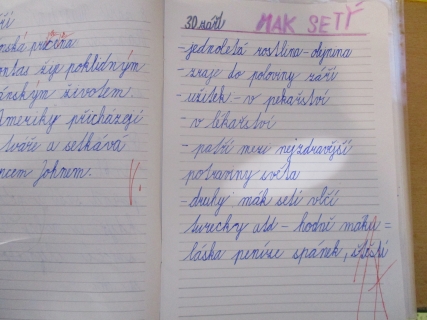 ři
nská příčina
ontas žije poklidným
ánským životem.
Ameriky přicházejí
tváře a setkává
ncem Johnem.
30. září MAK SETÝ
- jednoletá rostlina - olejnina
- zraje do poloviny září
- užitek - v pekařství
- v lékařství
- patří mezi nejzdravější
potraviny světa
- druhy: mák setí vlčí
turecky atd - hodně máku =
láska peníze spánek, štěstí